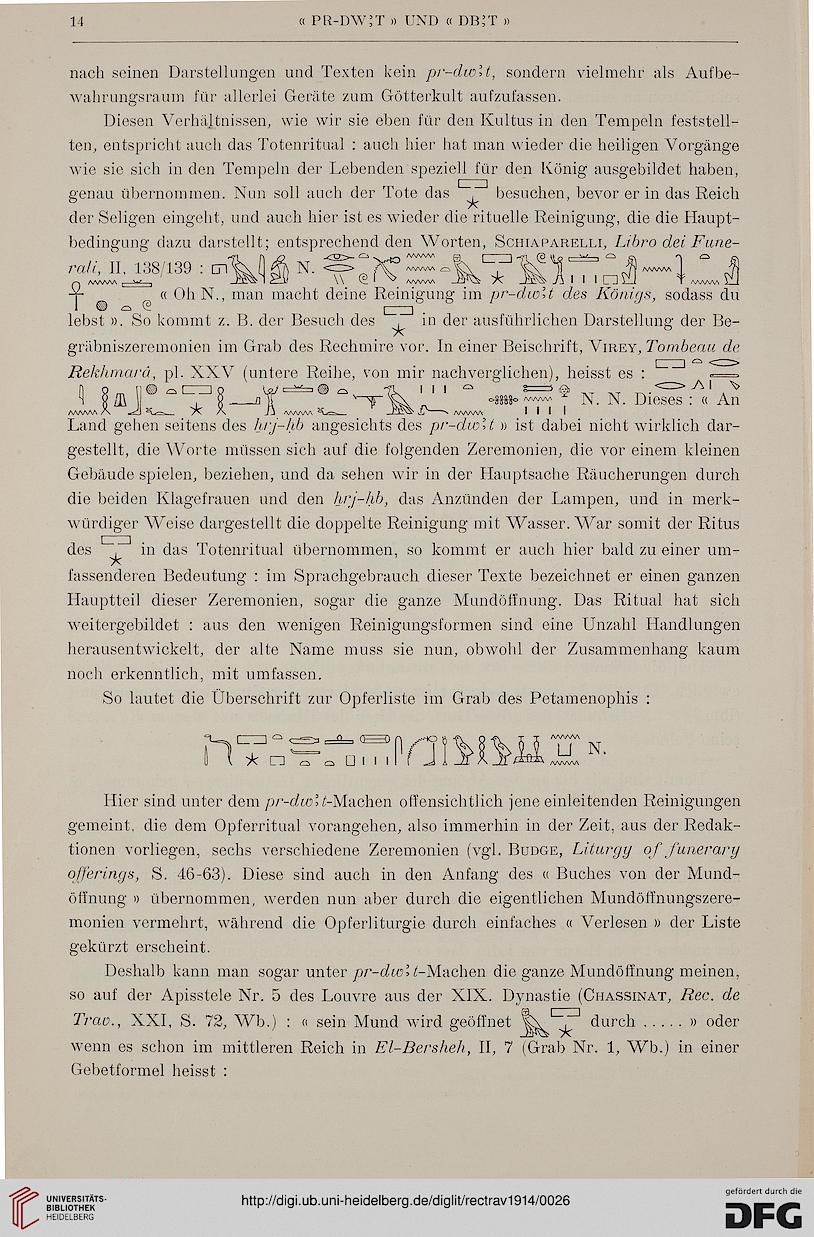 14 « PR-DWꜢT » UND « DBꜢT »
nach seinen Darstellungen und Texten kein pr-dwꜢt, sondern vielmehr als Aufbe-
wahrungsraum für allerlei Geräte zum Götterkult aufzufassen.
Diesen Verhältnissen, wie wir sie eben für den Kultus in den Tempeln feststell-
ten, entspricht auch das Totenritual : auch hier hat man wieder die heiligen Vorgänge
wie sie sich in den Tempeln der Lebenden speziell für den König ausgebildet haben,
genau übernommen. Nun soll auch der Tote das besuchen, bevor er in das Reich
der Seligen eingeht, und auch hier ist es wieder die rituelle Reinigung, die die Haupt-
bedingung dazu darstellt; entsprechend den Worten, SCHIAPARELLI, Libro dei Fune-
rali, II, 138/139 : N.
« Oh N., man macht deine Reinigung im pr-dwꜢt des Königs, sodass du
lebst ». So kommt z. B. der Besuch des in der ausführlichen Darstellung der Be-
gräbniszeremonien im Grab des Rechmire vor. In einer Beischrift, VIREY, Tombeau de
Rekhmarâ, pl. XXV (untere Reihe, von mir nachverglichen), heisst es :
N. N. Dieses : « An
Land gehen seitens des ẖrj-ḥb angesichts des pr-dwꜢt » ist dabei nicht wirklich dar-
gestellt, die Worte müssen sich auf die folgenden Zeremonien, die vor einem kleinen
Gebäude spielen, beziehen, und da sehen wir in der Hauptsache Räucherungen durch
die beiden Klagefrauen und den ẖrj-ḥb, das Anzünden der Lampen, und in merk-
würdiger Weise dargestellt die doppelte Reinigung mit Wasser. War somit der Ritus
des in das Totenritual übernommen, so kommt er auch hier bald zu einer um-
fassenderen Bedeutung : im Sprachgebrauch dieser Texte bezeichnet er einen ganzen
Hauptteil dieser Zeremonien, sogar die ganze Mundöffnung. Das Ritual hat sich
weitergebildet : aus den wenigen Reinigungsformen sind eine Unzahl Handlungen
herausentwickelt, der alte Name muss sie nun, obwohl der Zusammenhang kaum
noch erkenntlich, mit umfassen.
So lautet die Überschrift zur Opferliste im Grab des Petamenophis :
N.
Hier sind unter dem pr-dwꜢt-Machen offensichtlich jene einleitenden Reinigungen
gemeint, die dem Opferritual vorangehen, also immerhin in der Zeit, aus der Redak-
tionen vorliegen, sechs verschiedene Zeremonien (vgl. BUDGE, Liturgy of funerary
offerings, S. 46-63). Diese sind auch in den Anfang des « Buches von der Mund-
öffnung » übernommen, werden nun aber durch die eigentlichen Mundöffnungszere-
monien vermehrt, während die Opferliturgie durch einfaches « Verlesen » der Liste
gekürzt erscheint.
Deshalb kann man sogar unter pr-dwꜢt-Machen die ganze Mundöffnung meinen,
so auf der Apisstele Nr. 5 des Louvre aus der XIX. Dynastie (CHASSINAT, Rec. de
Trav., XXI, S. 72, Wb.) : « sein Mund wird geöffnet durch ..... » oder
wenn es schon im mittleren Reich in El-Bersheh, II, 7 (Grab Nr. 1, Wb.) in einer
Gebetformel heisst :
UNIVERSITÄTS-
BIBLIOTHEK
HEIDELBERG
http://digi.ub.uni-heidelberg.de/diglit/rectrav1914/0026
gefördert durch die
DFG